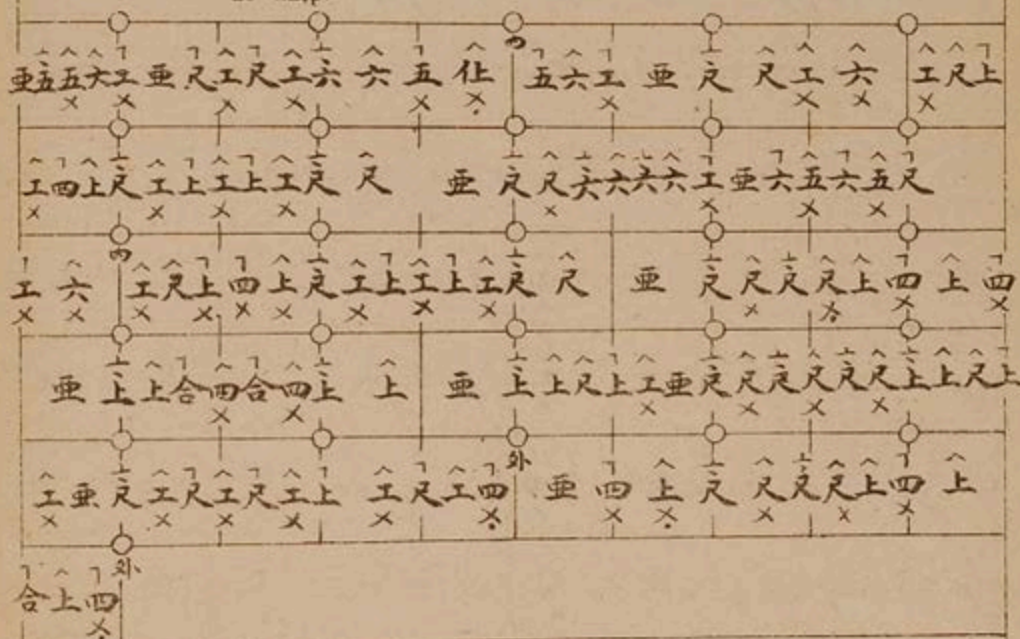 亜五五六工亜尺工尺工六六五仩五六工亜尺尺工六工尺上
工四上尺工上工上工尺尺亜尺尺六六六六工亜六五六五尺
工六工尺上四上尺工上工上工尺尺亜尺尺尺尺上四上四
亜上上合四合四上上亜上上尺上工亜尺尺尺尺尺尺上上尺上
工亜尺工尺工尺工上工尺工四亜四上尺尺尺尺上四上
合上四